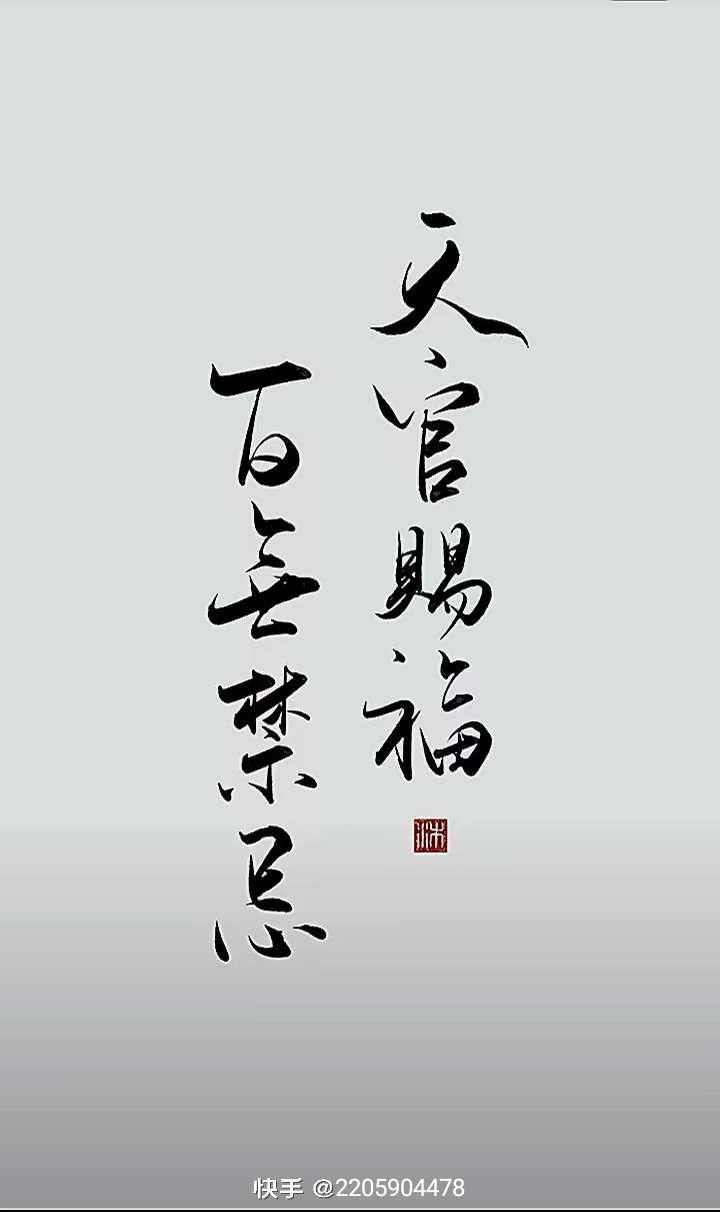 天官賜福
百無禁忌
快手 @2205904478